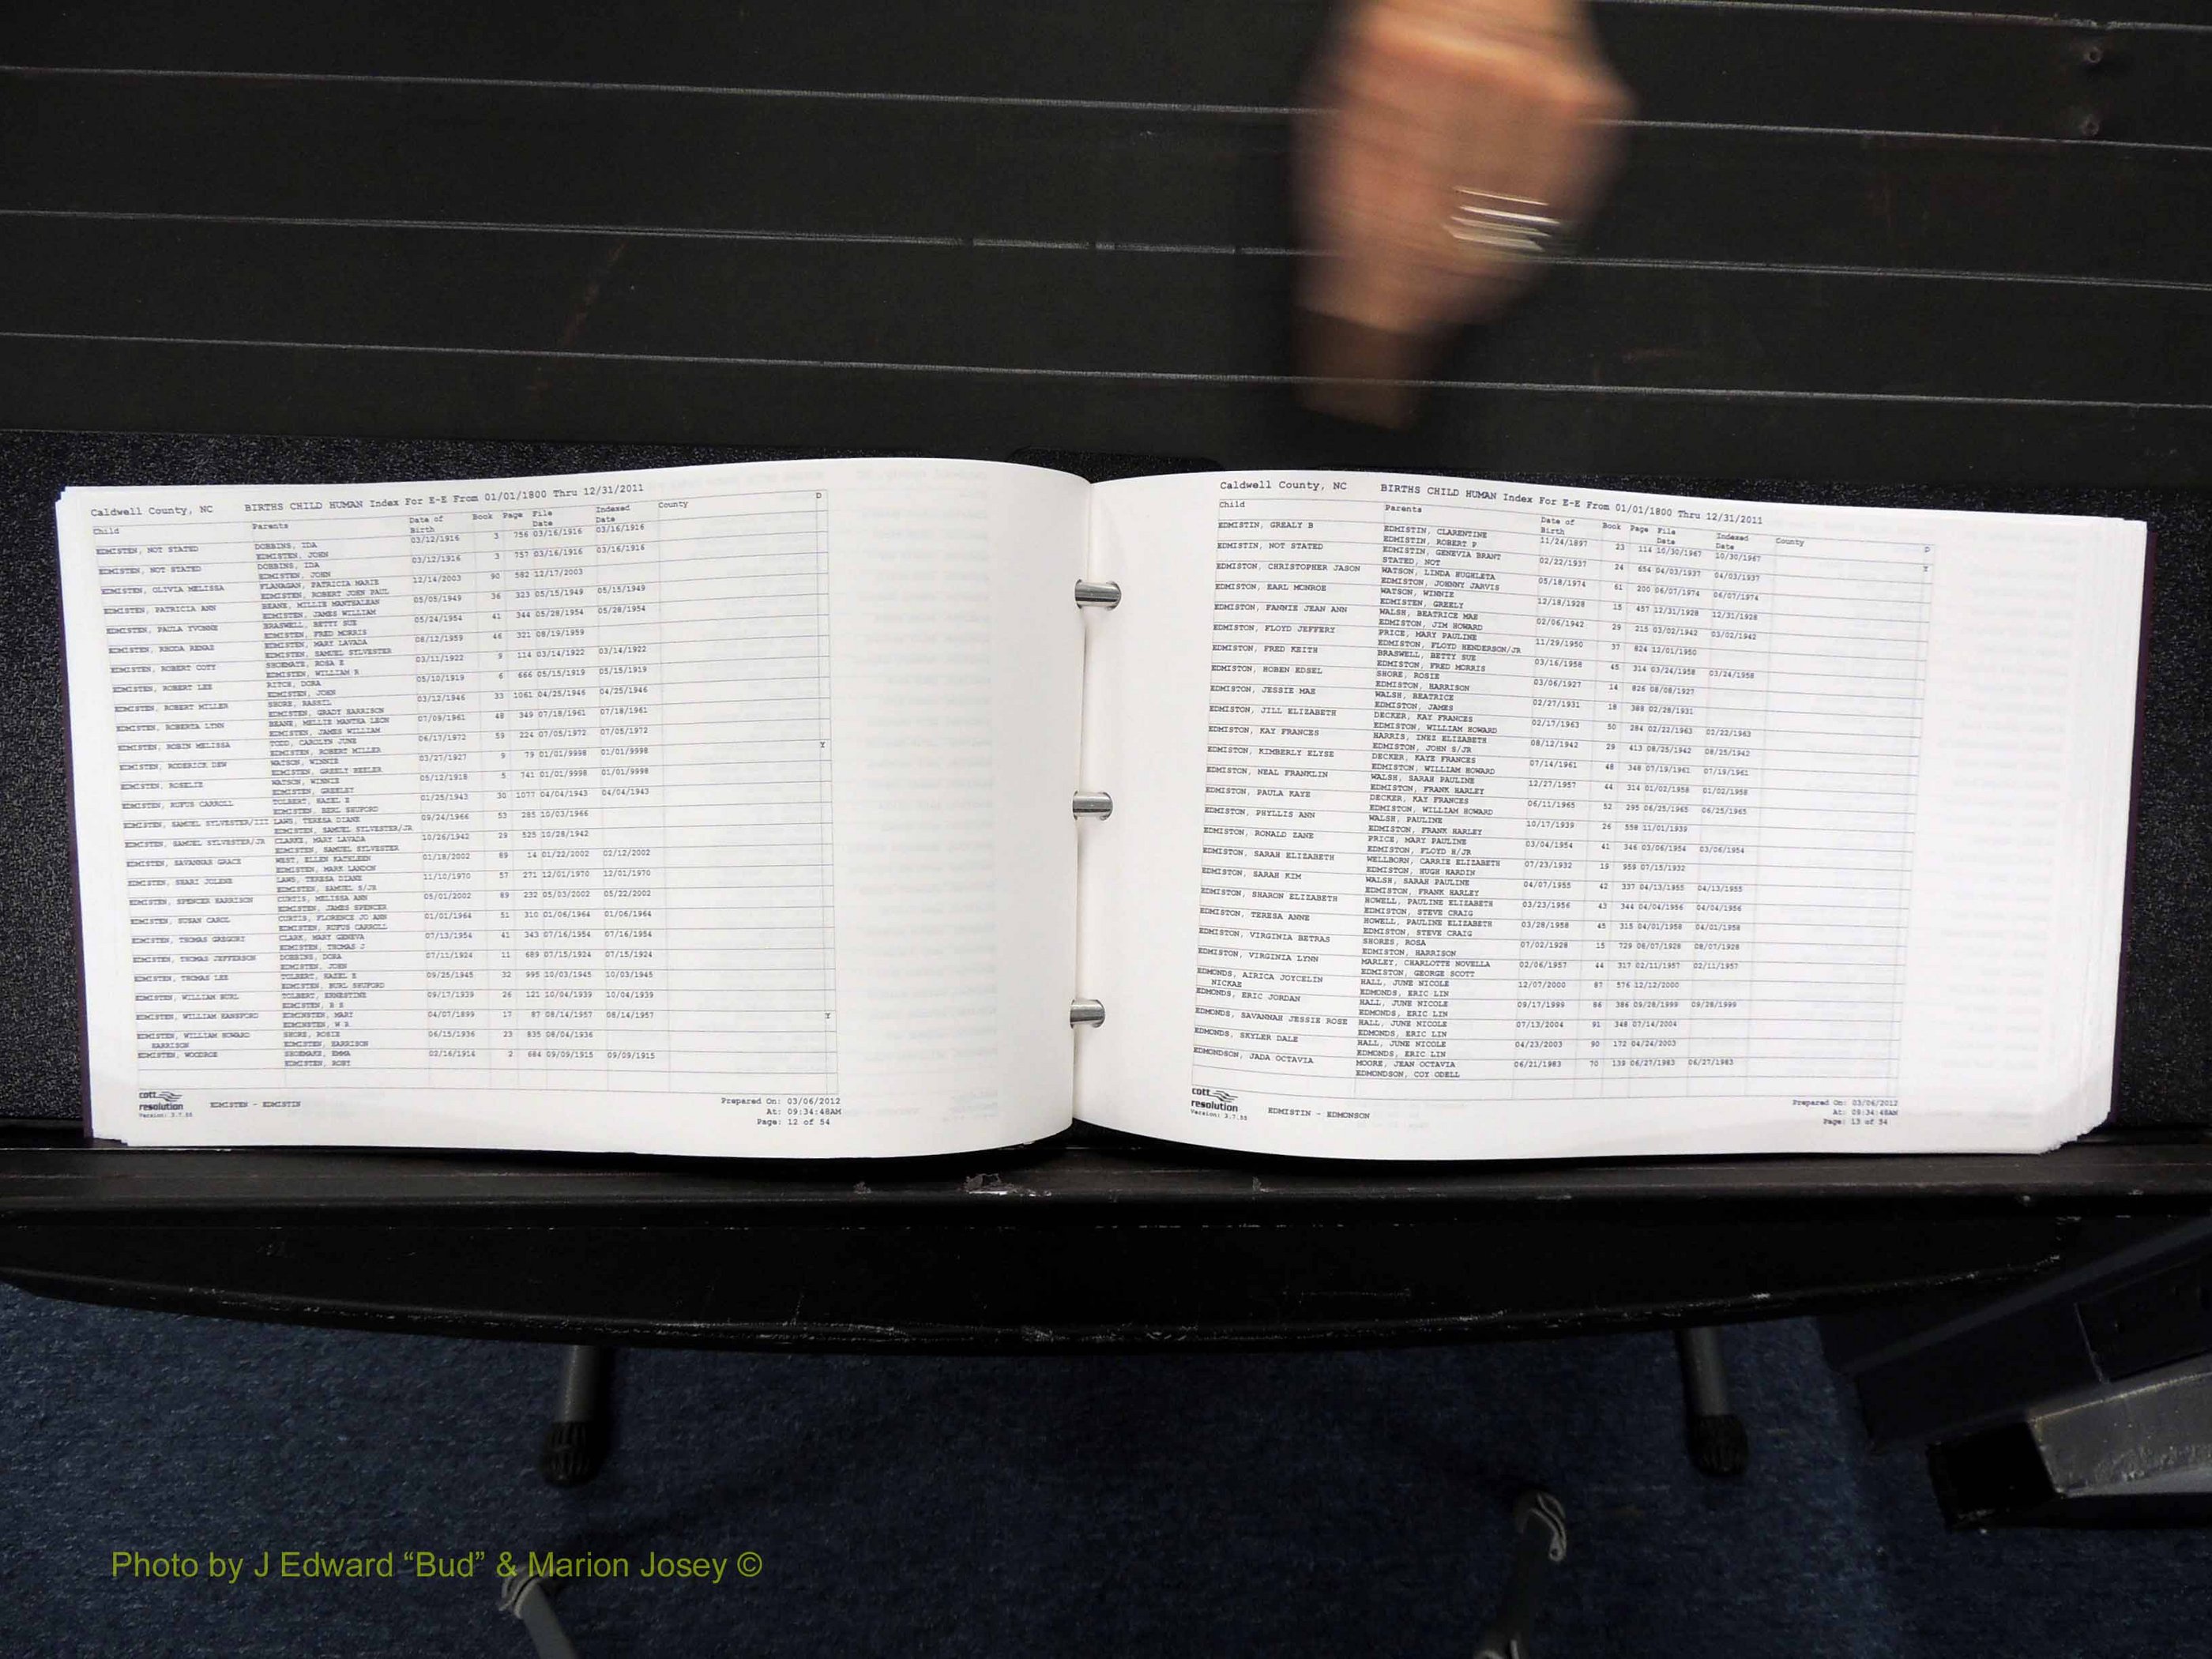 Caldwell County, NC BIRTHS CHILD HUMAN Index For E-E From 01/01/1800 Thru 12/31/2011
Child Parents Date of Birth Book Page File Date Indexed Date County D
EDMISTEN, NOT STATED DOBBINS, IDA 03/12/1916 3 756 03/16/1916 03/16/1916
EDMISTEN, JOHN
EDMISTEN, NOT STATED DOBBINS, IDA 03/12/1916 3 757 03/16/1916 03/16/1916
EDMISTEN, JOHN
EDMISTEN, OLIVIA MELISSA FLANAGAN, PATRICIA MARIE 12/14/2003 90 582 12/17/2003
EDMISTEN, ROBERT JOHN PAUL
EDMISTEN, PATRICIA ANN BEANE, MILLIE MANTHALEAN 05/05/1949 36 323 05/15/1949 05/15/1949
EDMISTEN, JAMES WILLIAM
EDMISTEN, PAULA YVONNE BRASWELL, BETTY SUE 05/24/1954 41 344 05/28/1954 05/28/1954
EDMISTEN, FRED MORRIS
EDMISTEN, RHODA RENAE EDMISTEN, MARY LAVADA 08/12/1959 46 321 08/19/1959
EDMISTEN, SAMUEL SYLVESTER
EDMISTEN, ROBERT COTY SHOEMATE, ROSA E 03/11/1922 9 114 03/14/1922 03/14/1922
EDMISTEN, WILLIAM R
EDMISTEN, ROBERT LEE RITCH, DORA 05/10/1919 6 666 05/15/1919 05/15/1919
EDMISTEN, JOHN
EDMISTEN, ROBERT MILLER SHORE, RASSIL 03/12/1946 33 1061 04/25/1946 04/25/1946
EDMISTEN, GRADY HARRISON
EDMISTEN, ROBERTA LYNN BEANE, MELLIE MANTHA LEON 07/09/1961 48 349 07/18/1961 07/18/1961
EDMISTEN, JAMES WILLIAM
EDMISTEN, ROBIN MELISSA TODD, CAROLYN JUNE 06/17/1972 59 224 07/05/1972 07/05/1972
EDMISTEN, ROBERT MILLER
EDMISTEN, RODERICK DEW WATSON, WINNIE 03/27/1927 9 79 01/01/9998 01/01/9998 Y
EDMISTEN, GREELY BEELER
EDMISTEN, ROSELIE WATSON, WINNIE 05/12/1918 5 741 01/01/9998 01/01/9998
EDMISTEN, GREELEY
EDMISTEN, RUFUS CARROLL TOLBERT, HAZEL E 01/25/1943 30 1077 04/04/1943 04/04/1943
EDMISTEN, BERL SHUFORD
EDMISTEN, SAMUEL SYLVESTER/III LAWS, TERESA DIANE 09/24/1966 53 285 10/03/1966
EDMISTEN, SAMUEL SYLVESTER/JR
EDMISTEN, SAMUEL SYLVESTER/JR CLARKE, MARY LAVADA 10/26/1942 29 525 10/28/1942
EDMISTEN, SAMUEL SYLVESTER
EDMISTEN, SAVANNAH GRACE WEST, ELLEN KATHLEEN 01/18/2002 89 14 01/22/2002 02/12/2002
EDMISTEN, MARK LANDON
EDMISTEN, SHARI JOLENE LAWS, TERESA DIANE 11/10/1970 57 271 12/01/1970 12/01/1970
EDMISTEN, SAMUEL S/JR
EDMISTEN, SPENCER HARRISON CURTIS, MELISSA ANN 05/01/2002 89 232 05/03/2002 05/22/2002
EDMISTEN, JAMES SPENCER
EDMISTEN, SUSAN CAROL CURTIS, FLORENCE JO ANN 01/01/1964 51 310 01/06/1964 01/06/1964
EDMISTEN, RUFUS CARROLL
EDMISTEN, THOMAS GREGORY CLARK, MARY GENEVA 07/13/1954 41 343 07/16/1954 07/16/1954
EDMISTEN, THOMAS J
EDMISTEN, THOMAS JEFFERSON DOBBINS, DORA 07/11/1924 11 689 07/15/1924 07/15/1924
EDMISTEN, JOHN
EDMISTEN, THOMAS LEE TOLBERT, HAZEL E 09/25/1945 32 995 10/03/1945 10/03/1945
EDMISTEN, BURL SHUFORD
EDMISTEN, WILLIAM BURL TOLBERT, ERNESTINE 09/17/1939 26 121 10/04/1939 10/04/1939
EDMISTEN, B S
EDMISTEN, WILLIAM HANSFORD EDMINSTEN, MARY 04/07/1899 17 87 08/14/1957 08/14/1957 Y
EDMINSTEN, W R
EDMISTEN, WILLIAM HOWARD SHORE, ROSIE 06/15/1936 23 835 08/04/1936
HARRISON EDMISTEN, HARRISON
EDMISTEN, WOODROE SHOEMAKE, EMMA 02/16/1914 2 684 09/09/1915 09/09/1915
EDMISTEN, ROBT
cott
resolution EDMISTEN - EDMISTIN
Version: 3.7.55
Prepared On: 03/06/2012
At: 09:34:48AM
Page: 12 of 54
Caldwell County, NC BIRTHS CHILD HUMAN Index For E-E From 01/01/1800 Thru 12/31/2011
Child Parents Date of Birth Book Page File Date Indexed Date County D
EDMISTIN, GREALY B EDMISTIN, CLARENTINE 11/24/1897 23 114 10/30/1967 10/30/1967 Y
EDMISTIN, ROBERT P
EDMISTIN, NOT STATED EDMISTIN, GENEVIA BRANT 02/22/1937 24 654 04/03/1937 04/03/1937
STATED, NOT
EDMISTON, CHRISTOPHER JASON WATSON, LINDA HUGHLETA 05/18/1974 61 200 06/07/1974 06/07/1974
EDMISTON, JOHNNY JARVIS
EDMISTON, EARL MONROE WATSON, WINNIE 12/18/1928 15 457 12/31/1928 12/31/1928
EDMISTEN, GREELY
EDMISTON, FANNIE JEAN ANN WALSH, BEATRICE MAE 02/06/1942 29 215 03/02/1942 03/02/1942
EDMISTON, JIM HOWARD
EDMISTON, FLOYD JEFFERY PRICE, MARY PAULINE 11/29/1950 37 824 12/01/1950
EDMISTON, FLOYD HENDERSON/JR
EDMISTON, FRED KEITH BRASWELL, BETTY SUE 03/16/1958 45 314 03/24/1958 03/24/1958
EDMISTON, FRED MORRIS
EDMISTON, HOBEN EDSEL SHORE, ROSIE 03/06/1927 14 826 08/08/1927
EDMISTON, HARRISON
EDMISTON, JESSIE MAE WALSH, BEATRICE 02/27/1931 18 388 02/28/1931
EDMISTON, JAMES
EDMISTON, JILL ELIZABETH DECKER, KAY FRANCES 02/17/1963 50 284 02/22/1963 02/22/1963
EDMISTON, WILLIAM HOWARD
EDMISTON, KAY FRANCES HARRIS, INEZ ELIZABETH 08/12/1942 29 413 08/25/1942 08/25/1942
EDMISTON, JOHN S/JR
EDMISTON, KIMBERLY ELYSE DECKER, KAYE FRANCES 07/14/1961 48 348 07/19/1961 07/19/1961
EDMISTON, WILLIAM HOWARD
EDMISTON, NEAL FRANKLIN WALSH, SARAH PAULINE 12/27/1957 44 314 01/02/1958 01/02/1958
EDMISTON, FRANK HARLEY
EDMISTON, PAULA KAYE DECKER, KAY FRANCES 06/11/1965 52 295 06/25/1965 06/25/1965
EDMISTON, WILLIAM HOWARD
EDMISTON, PHYLLIS ANN WALSH, PAULINE 10/17/1939 26 558 11/01/1939
EDMISTON, FRANK HARLEY
EDMISTON, RONALD ZANE PRICE, MARY PAULINE 03/04/1954 41 346 03/06/1954 03/06/1954
EDMISTON, FLOYD H/JR
EDMISTON, SARAH ELIZABETH WELLBORN, CARRIE ELIZABETH 07/23/1932 19 959 07/15/1932
EDMISTON, HUGH HARDIN
EDMISTON, SARAH KIM WALSH, SARAH PAULINE 04/07/1955 42 337 04/13/1955 04/13/1955
EDMISTON, FRANK HARLEY
EDMISTON, SHARON ELIZABETH HOWELL, PAULINE ELIZABETH 03/23/1956 43 344 04/04/1956 04/04/1956
EDMISTON, STEVE CRAIG
EDMISTON, TERESA ANNE HOWELL, PAULINE ELIZABETH 03/28/1958 45 315 04/01/1958 04/01/1958
EDMISTON, STEVE CRAIG
EDMISTON, VIRGINIA BETRAS SHORES, ROSA 07/02/1928 15 729 08/07/1928 08/07/1928
EDMISTON, HARRISON
EDMISTON, VIRGINIA LYNN MARLEY, CHARLOTTE NOVELLA 02/06/1957 44 317 02/11/1957 02/11/1957
EDMISTON, GEORGE SCOTT
EDMONDS, AIRICA JOYCELIN HALL, JUNE NICOLE 12/07/2000 87 576 12/12/2000
NICKAE EDMONDS, ERIC LIN
EDMONDS, ERIC JORDAN HALL, JUNE NICOLE 09/17/1999 86 386 09/28/1999 09/28/1999
EDMONDS, ERIC LIN
EDMONDS, SAVANNAH JESSIE ROSE HALL, JUNE NICOLE 07/13/2004 91 348 07/14/2004
EDMONDS, ERIC LIN
EDMONDS, SKYLER DALE HALL, JUNE NICOLE 04/23/2003 90 172 04/24/2003
EDMONDS, ERIC LIN
EDMONDSON, JADA OCTAVIA MOORE, JEAN OCTAVIA 06/21/1983 70 139 06/27/1983 06/27/1983
EDMONDSON, COY ODELL
cott
resolution EDMISTIN - EDMONSON
Version: 3.7.55
Prepared On: 03/06/2012
At: 09:34:48AM
Page: 13 of 54
Photo by J Edward “Bud” & Marion Josey ©